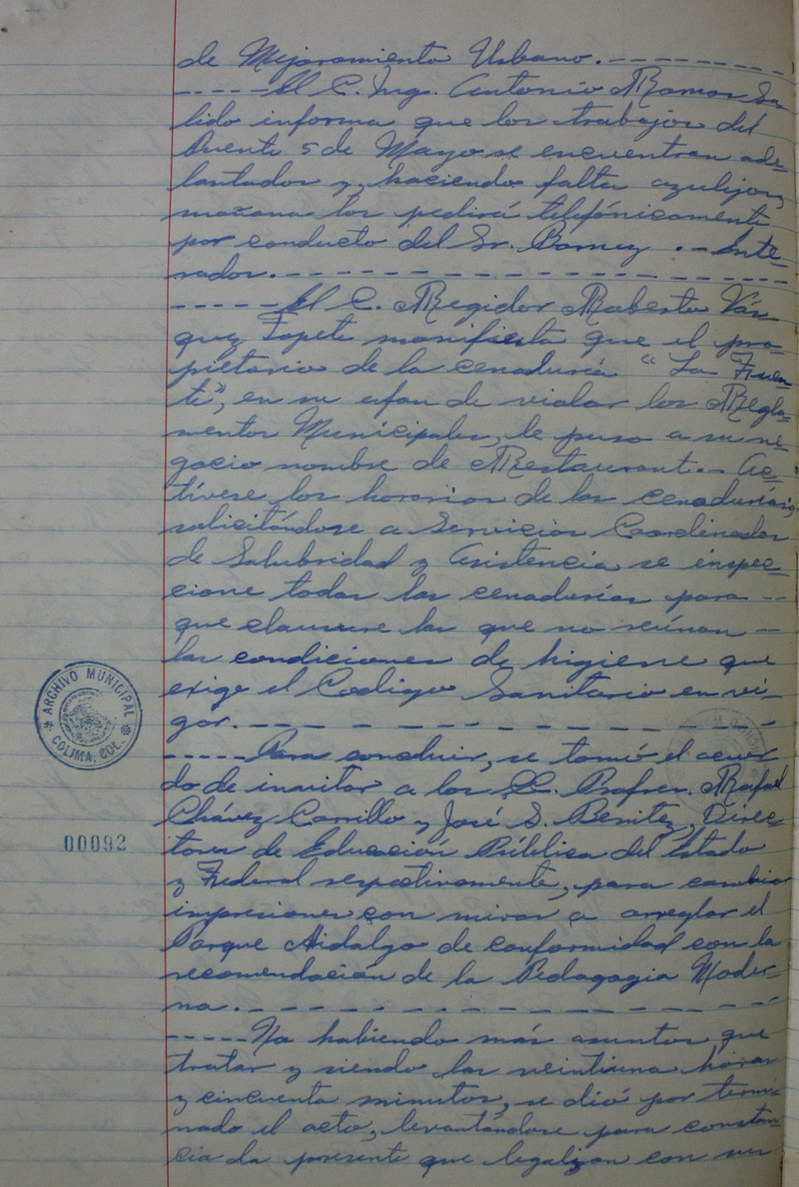 de Mejoramiento Urbano.---------
-----El C. Ing. Antonio Ramos Sa
lido informa que los trabajos del
Puente 5 de Mayo se encuentran ade-
lantados y, haciendo falta azulejos,
mañana los pedirá telefónicamente
por conducto del Sr. .-Ente-
rados.---------
-----El C. Regidor Roberto Váz
quez Topete manifiesta que el pro-
pietario de la cenaduría "La Fuen-
te", en su afan de violar los Regla-
mentos Municipales, le puso a su ne-
gocio nombre de Restaurant.-
los horarios de las cenadurías,
solicitándose a Servicios Coordinados
de Salubridad y Asistencia se inspec-
cione todas las cenadurías para --
que clausure las que no reúnan -
las condiciones de higiene que
exige el Codigo Sanitario en vi-
gor.---------
-----Para concluir, se tomó el acuer
do de invitar a los CC. Profres. Rafael
Chávez Carrillo y José S. Benitez, Direc
tores de Educación Pública del Estado
y Federal respectivamente, para cambiar
impresiones con miras a arreglar el
Parque Hidalgo de conformidad con la
recomendación de la Pedagogia Moder-
na.---------
-----No habiendo más asuntos que
tratar y siendo las veintiuna horas
y cincuenta minutos, se dió por termi
nado el acto, levantándose para constan-
cia la presente que legalizan con su
ARCHIVO MUNICIPAL
COLIMA, COL.
00092